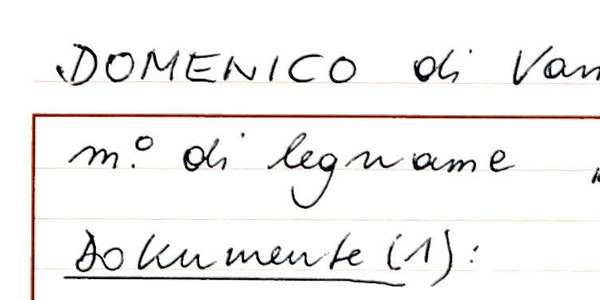 DOMENICO di Van
m.º di legname
Dokumente (1):